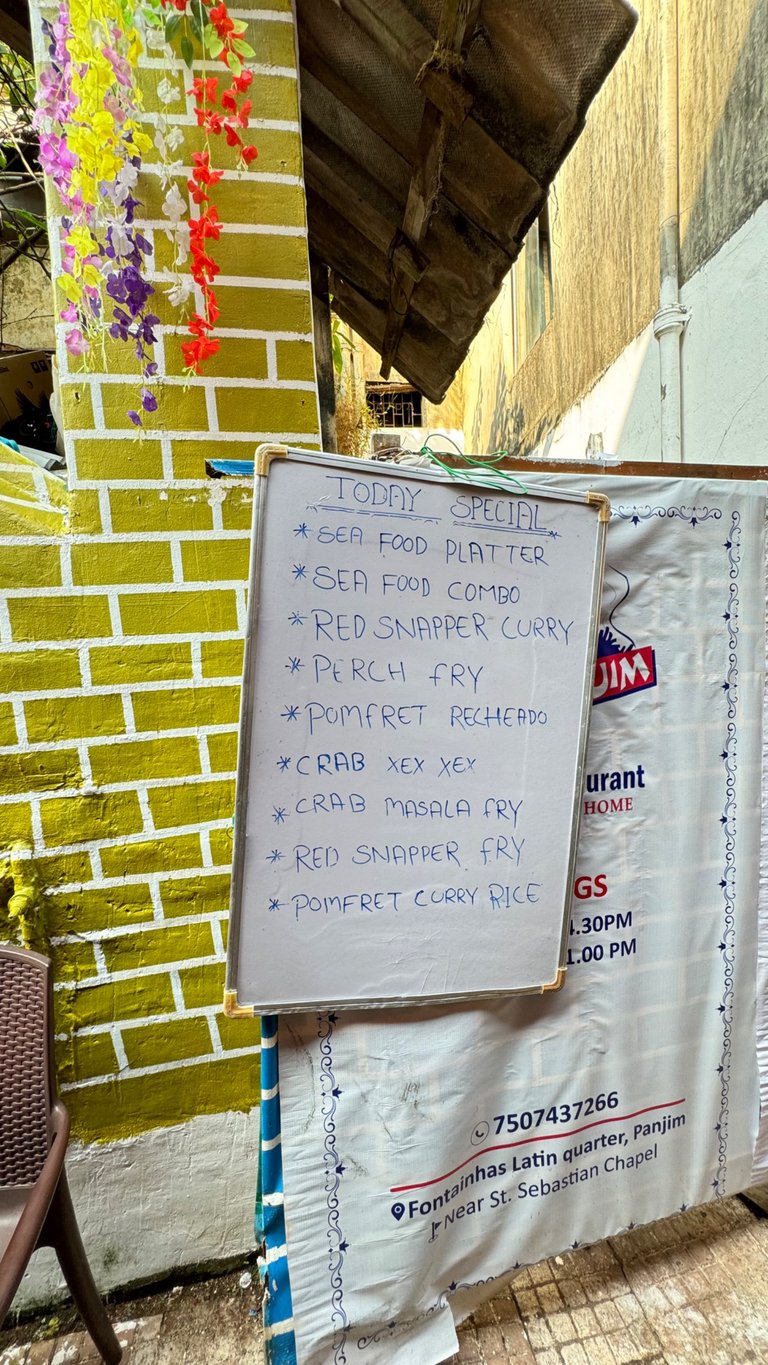 TODAY SPECIAL
* SEA FOOD PLATTER
* SEA FOOD COMBO
* RED SNAPPER CURRY
* PERCH FRY
* POMFRET RECHEADO
* CRAB XEX XEX
* CRAB MASALA FRY
* RED SNAPPER FRY
* POMFRET CURRY RICE
JIM
urant
HOME
GS
.30PM
1.00 PM
7507437266
Fontainhas Latin quarter, Panjim
Near St. Sebastian Chapel